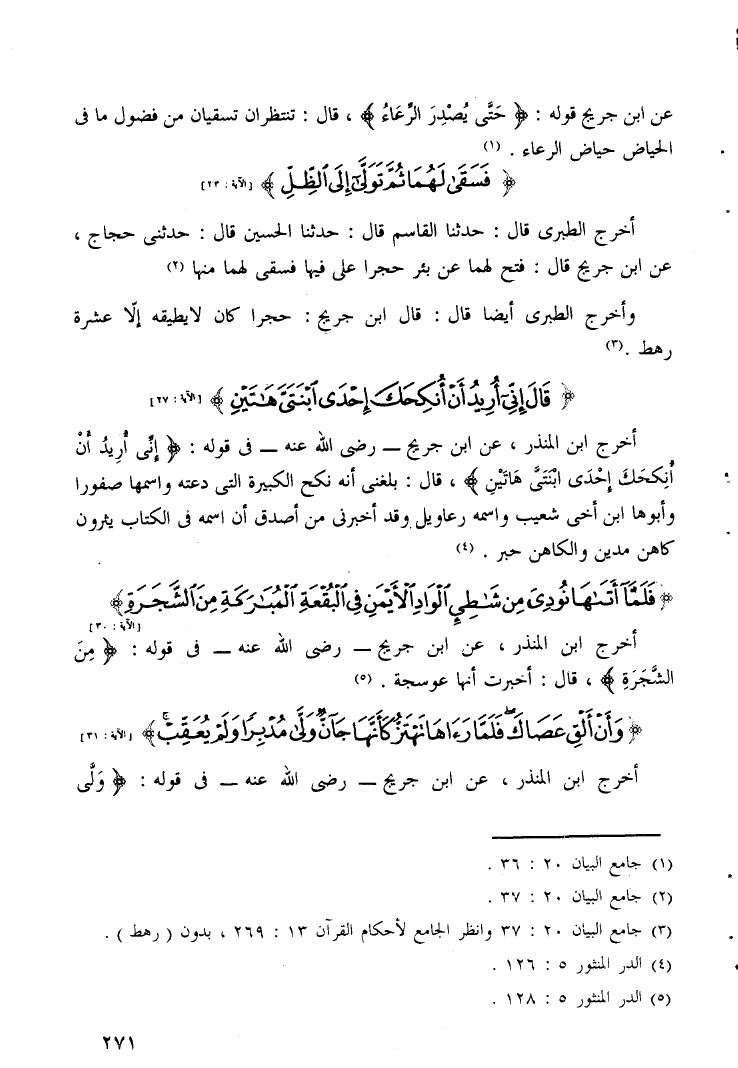 عن ابن جريج قوله : ﴿ حَتَّى يُصْدِرَ الرِّعَاءُ ﴾ ، قال : تنتظران تسقيان من فضول ما فى
الحياض حياض الرعاء . (١)
﴿ فَسَقَىٰ لَهُمَا ثُمَّ تَوَلَّىٰٓ إِلَى ٱلظِّلِّ ﴾ [الآية : ٢٣]
أخرج الطبرى قال : حدثنا القاسم قال : حدثنا الحسين قال : حدثنى حجاج ،
عن ابن جريج قال : فتح لهما عن بئر حجرا على فيها فسقى لهما منها (٢)
وأخرج الطبرى أيضا قال : قال ابن جريج : حجرا كان لايطيقه إلّا عشرة
رهط .(٣)
﴿ قَالَ إِنِّىٓ أُرِيدُ أَنْ أُنكِحَكَ إِحْدَى ٱبْنَتَىَّ هَٰتَيْنِ ﴾ [الآية : ٢٧]
أخرج ابن المنذر ، عن ابن جريج ــ رضى الله عنه ــ فى قوله : ﴿ إِنِّى أُرِيدُ أَنْ
أُنكِحَكَ إِحْدَى ابْنَتَىَّ هَاتَيْنِ ﴾ ، قال : بلغنى أنه نكح الكبيرة التى دعته واسمها صفورا
وأبوها ابن أخى شعيب واسمه رعاويل وقد أخبرنى من أصدق أن اسمه فى الكتاب يثرون
كاهن مدين والكاهن حبر . (٤)
﴿ فَلَمَّآ أَتَىٰهَا نُودِىَ مِن شَٰطِئِ ٱلْوَادِ ٱلْأَيْمَنِ فِى ٱلْبُقْعَةِ ٱلْمُبَٰرَكَةِ مِنَ ٱلشَّجَرَةِ ﴾
[الآية : ٣٠]
أخرج ابن المنذر ، عن ابن جريج ــ رضى الله عنه ــ فى قوله : ﴿ مِنَ
الشَّجَرَةِ ﴾ ، قال : أخبرت أنها عوسجة . (٥)
﴿ وَأَنْ أَلْقِ عَصَاكَ ۖ فَلَمَّا رَءَاهَا تَهْتَزُّ كَأَنَّهَا جَآنٌّ وَلَّىٰ مُدْبِرًا وَلَمْ يُعَقِّبْ ۚ ﴾ [الآية : ٣١]
أخرج ابن المنذر ، عن ابن جريج ــ رضى الله عنه ــ فى قوله : ﴿ وَلَّى
(١) جامع البيان ٢٠ : ٣٦ .
(٢) جامع البيان ٢٠ : ٣٧ .
(٣) جامع البيان ٢٠ : ٣٧ وانظر الجامع لأحكام القرآن ١٣ : ٢٦٩ ، بدون ( رهط ) .
(٤) الدر المنثور ٥ : ١٢٦ .
(٥) الدر المنثور ٥ : ١٢٨ .
٢٧١